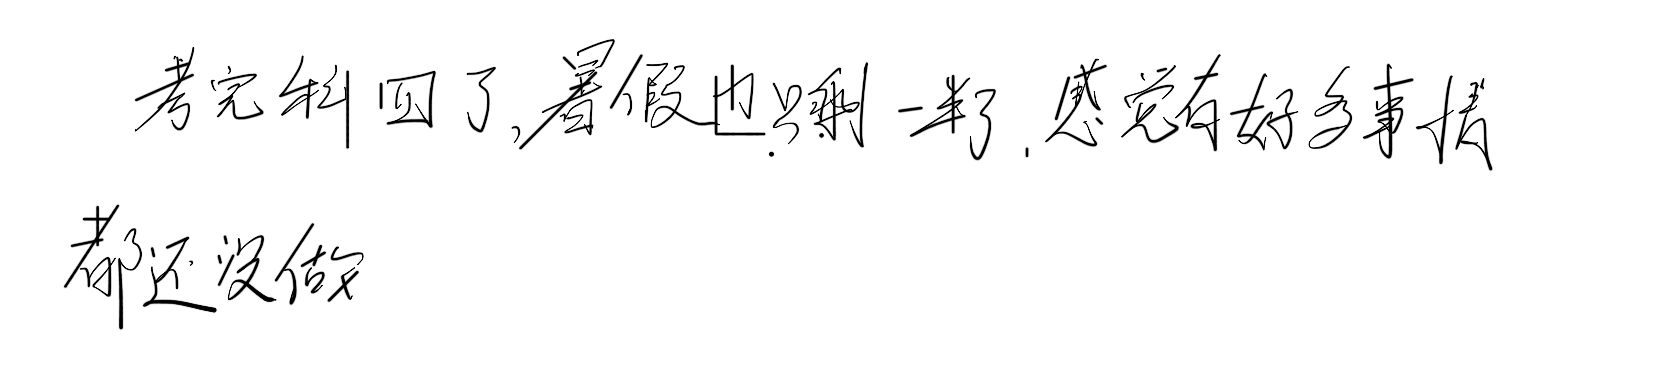 考完科四了,暑假也只剩一半了,感觉有好多事情
都还没做